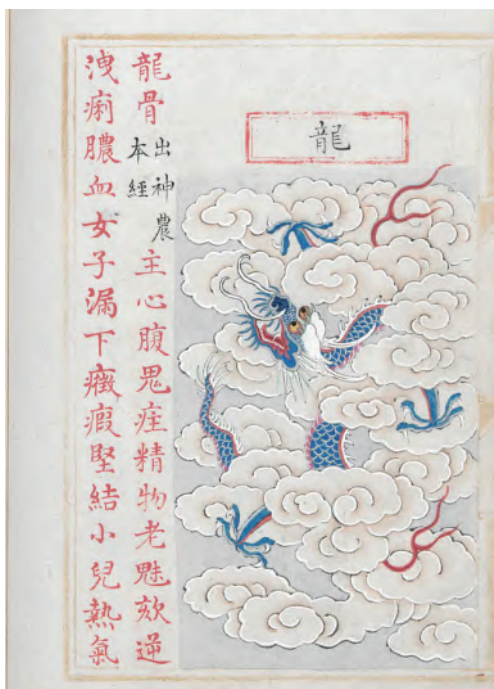 龍
龍骨
出神農
本經
主心腹鬼疰精物老魅欬逆
洩痢膿血女子漏下癥瘕堅結小兒熱氣